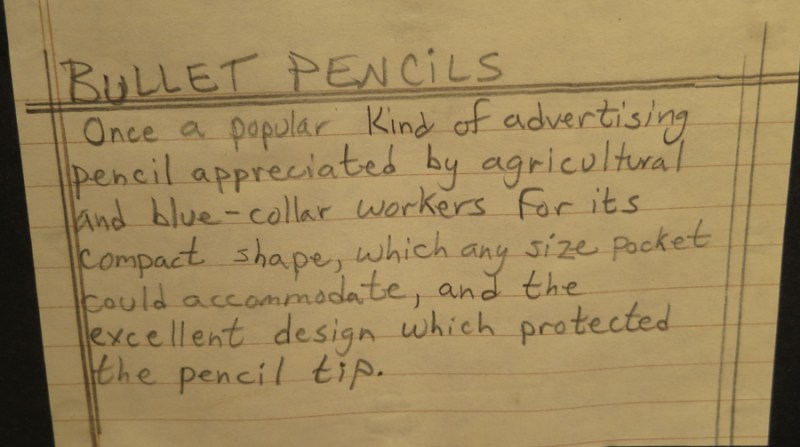 BULLET PENCiLS
Once a popular Kind of advertising
pencil appreciated by agricultural
and blue-collar workers for its
compact shape, which any size pocket
could accommodate, and the
excellent design which protected
the pencil tip.